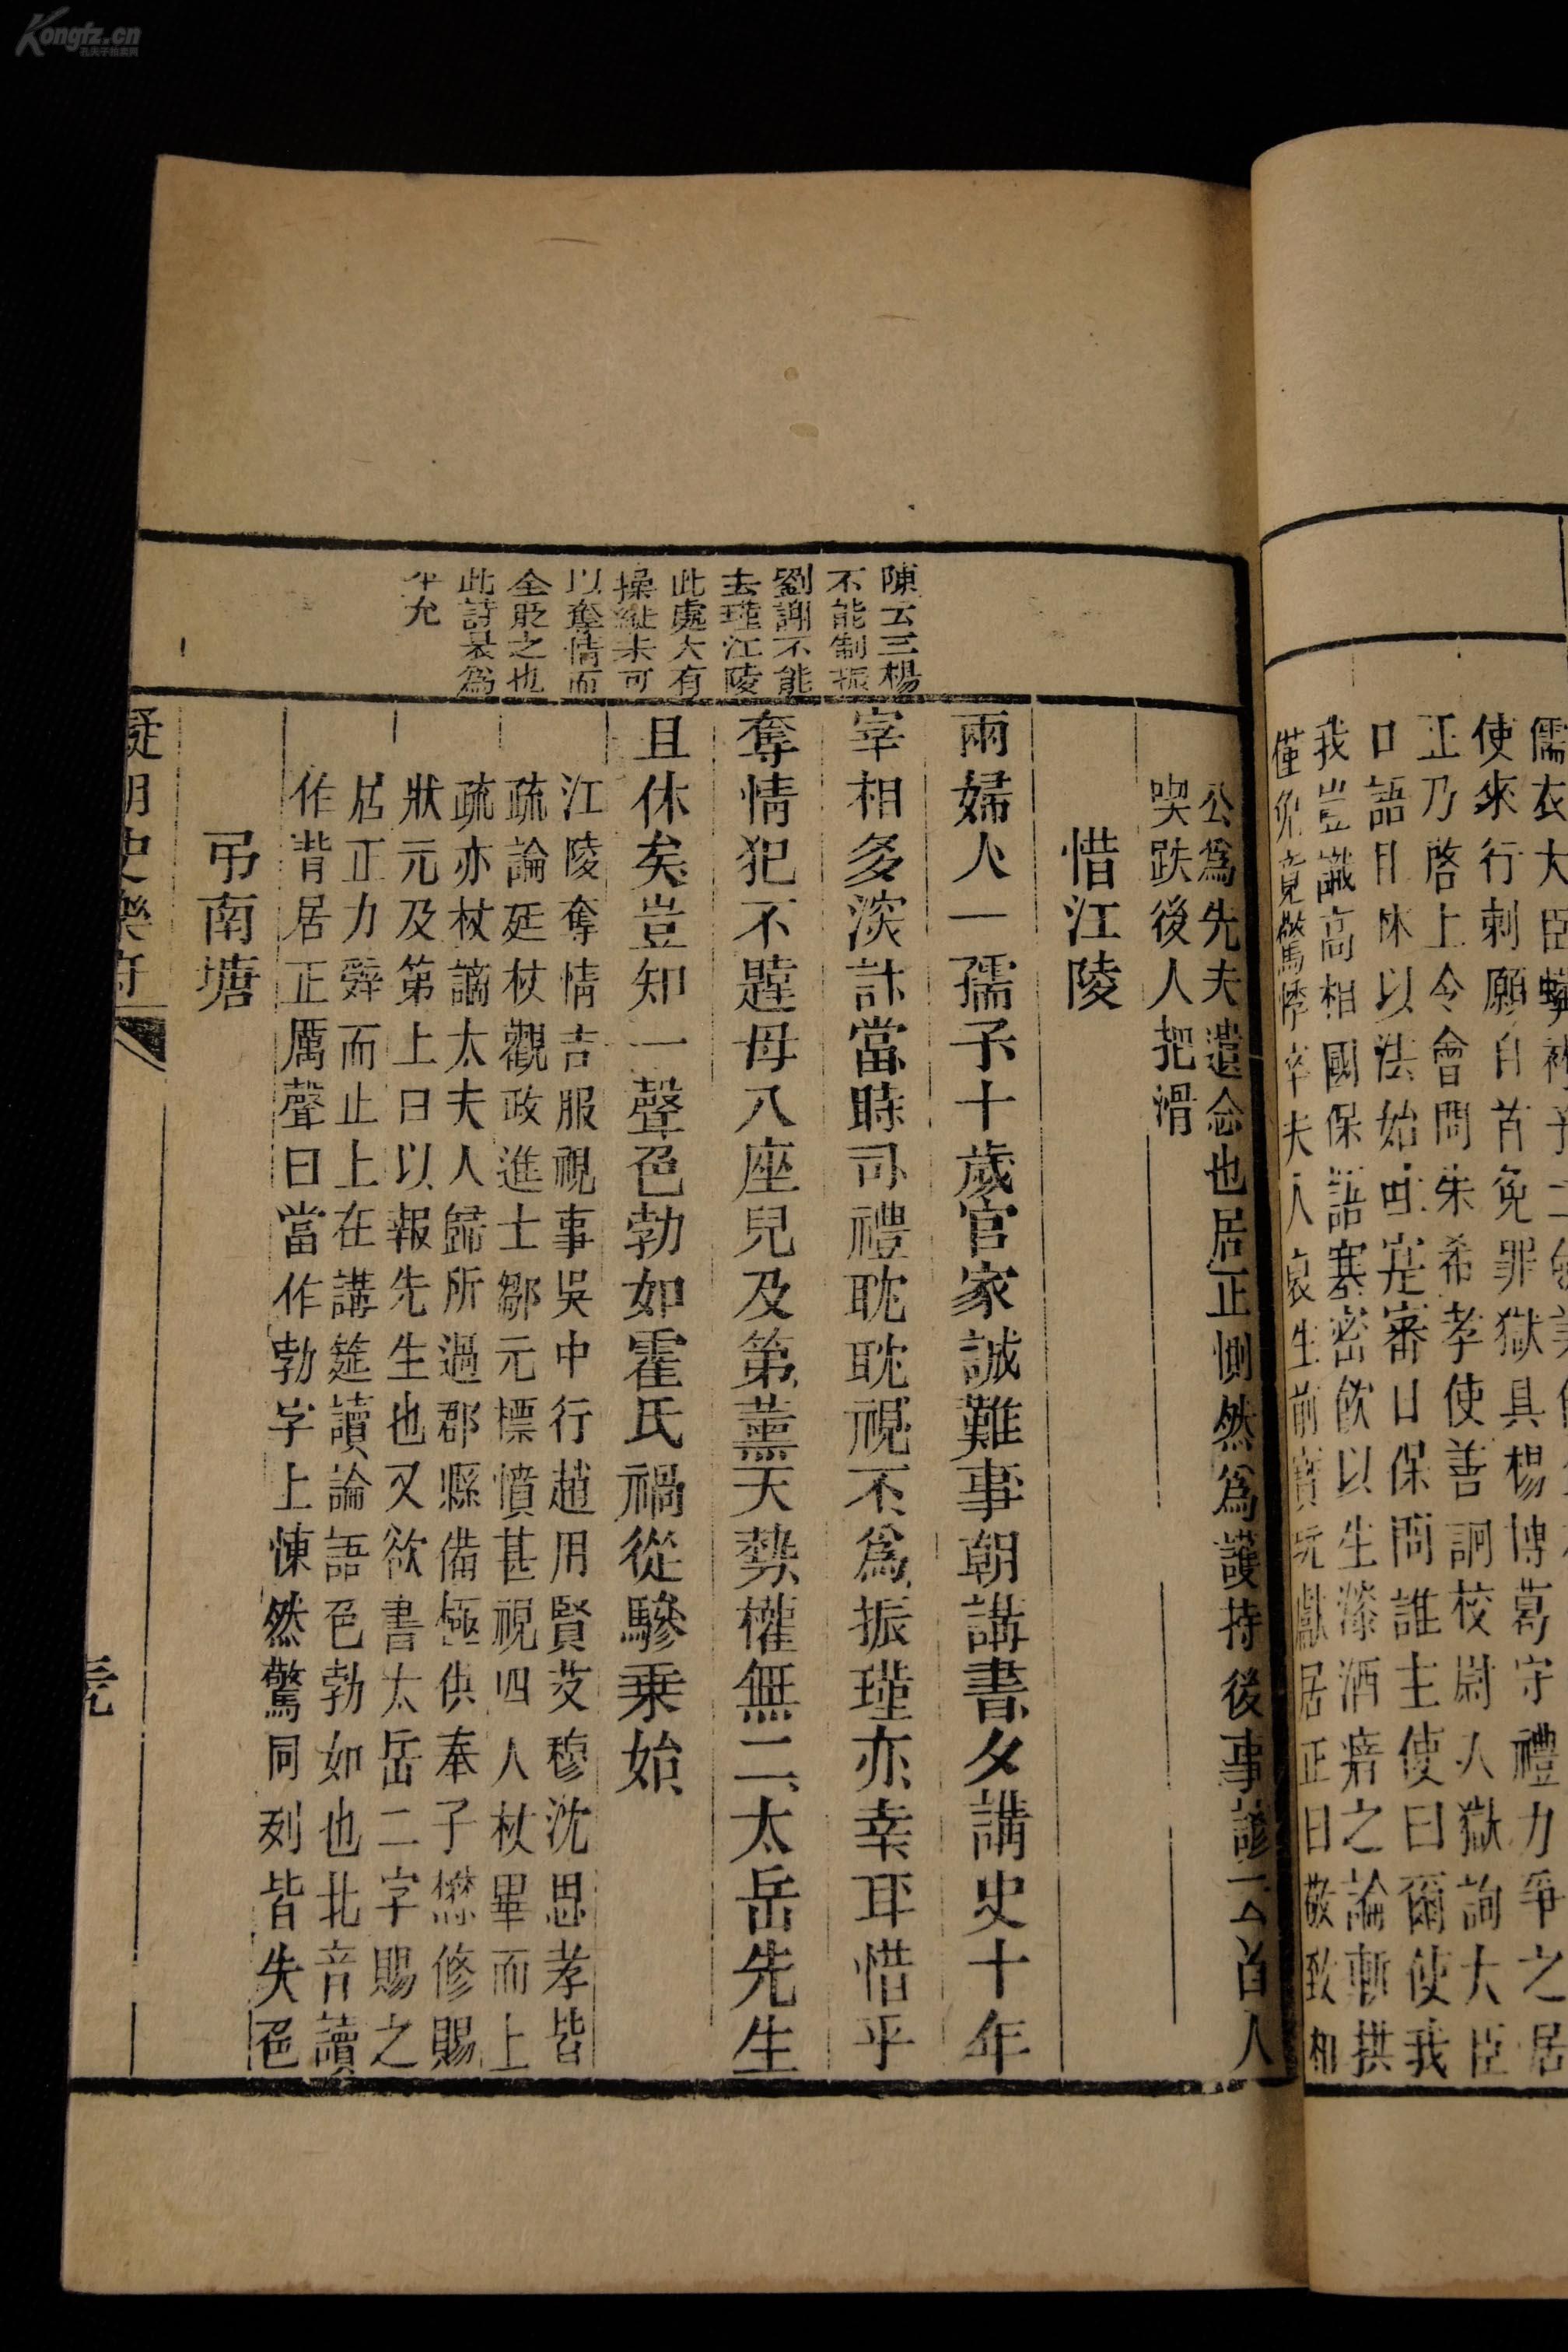 儒衣大臣蟒
使來行刺願自首免罪獄具楊博葛守禮力爭之居
正乃啓上令會問朱希孝使善詗校尉入獄詢大臣
口語且怵以法始吐寔審日保問誰主使曰爾使我
我豈識高相國保語塞密飲以生漆酒瘖之論斬拱
僅免竟驚悸卒夫人哀生前寶玩獻居正曰敬致相
公爲先夫遺念也居正惻然爲護持後事諺云首人
喫跌後人把滑
惜江陵
兩婦人一孺子十歲官家誠難事朝講書夕講史十年
宰相多深計當時司禮眈眈視不爲振瑾亦幸耳惜乎
奪情犯不韙母八座兒及第薰天勢權無二太岳先生
且休矣豈知一聲色勃如霍氏禍從驂乘始
江陵奪情吉服視事吳中行趙用賢艾穆沈思孝皆
疏論廷杖觀政進士鄒元標憤甚視四人杖畢而上
疏亦杖謫太夫人歸所過郡縣備極供奉子懋修賜
狀元及第上曰以報先生也又欲書太岳二字賜之
居正力辤而止上在講筵讀論語色勃如也北音讀
作背居正厲聲曰當作勃字上悚然驚同列皆失色
弔南塘
陳云三楊
不能制振
劉謝不能
去瑾江陵
此處大有
操縱未可
以奪情而
全貶之也
此詩最爲
平允
擬明史樂府
Kongfz.cn
孔夫子拍卖网